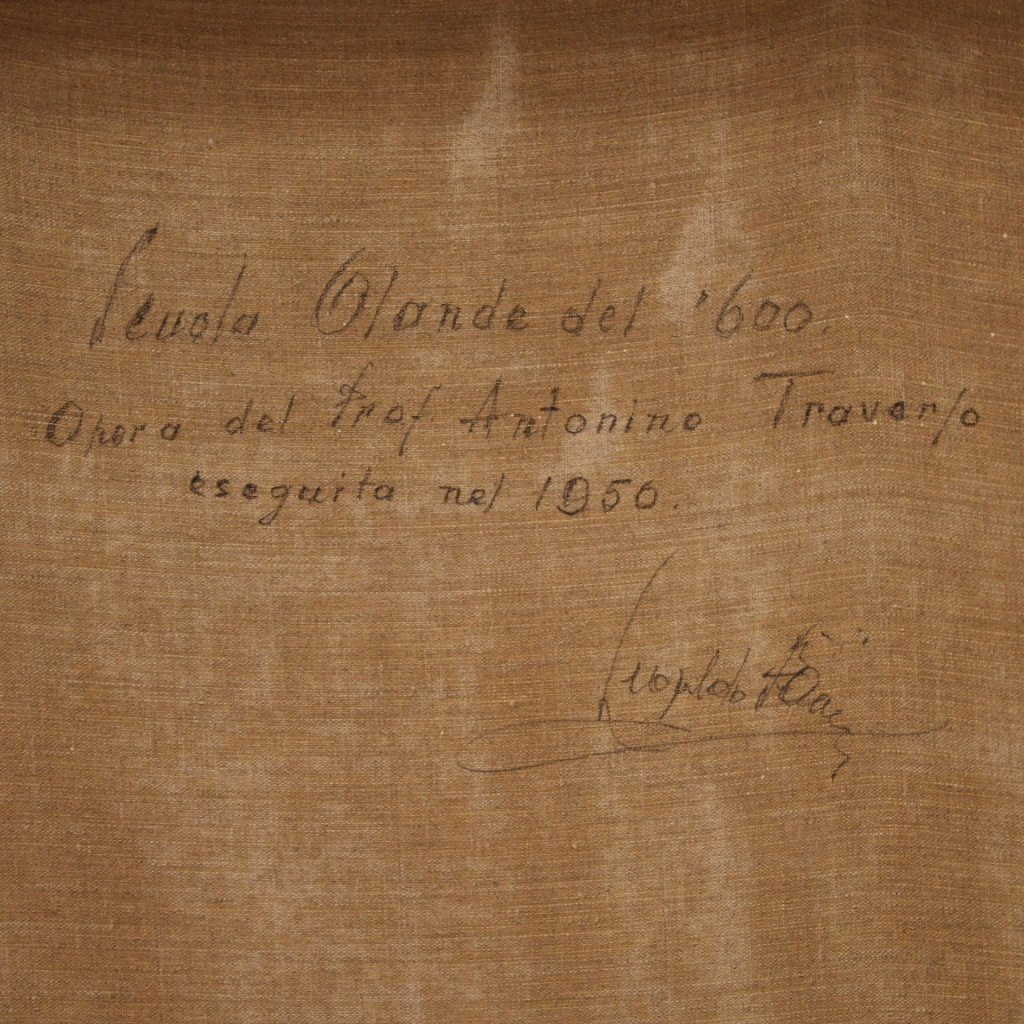 Scuola Olande del '600.
Opera del Prof Antonino Traverso
eseguita nel 1950.